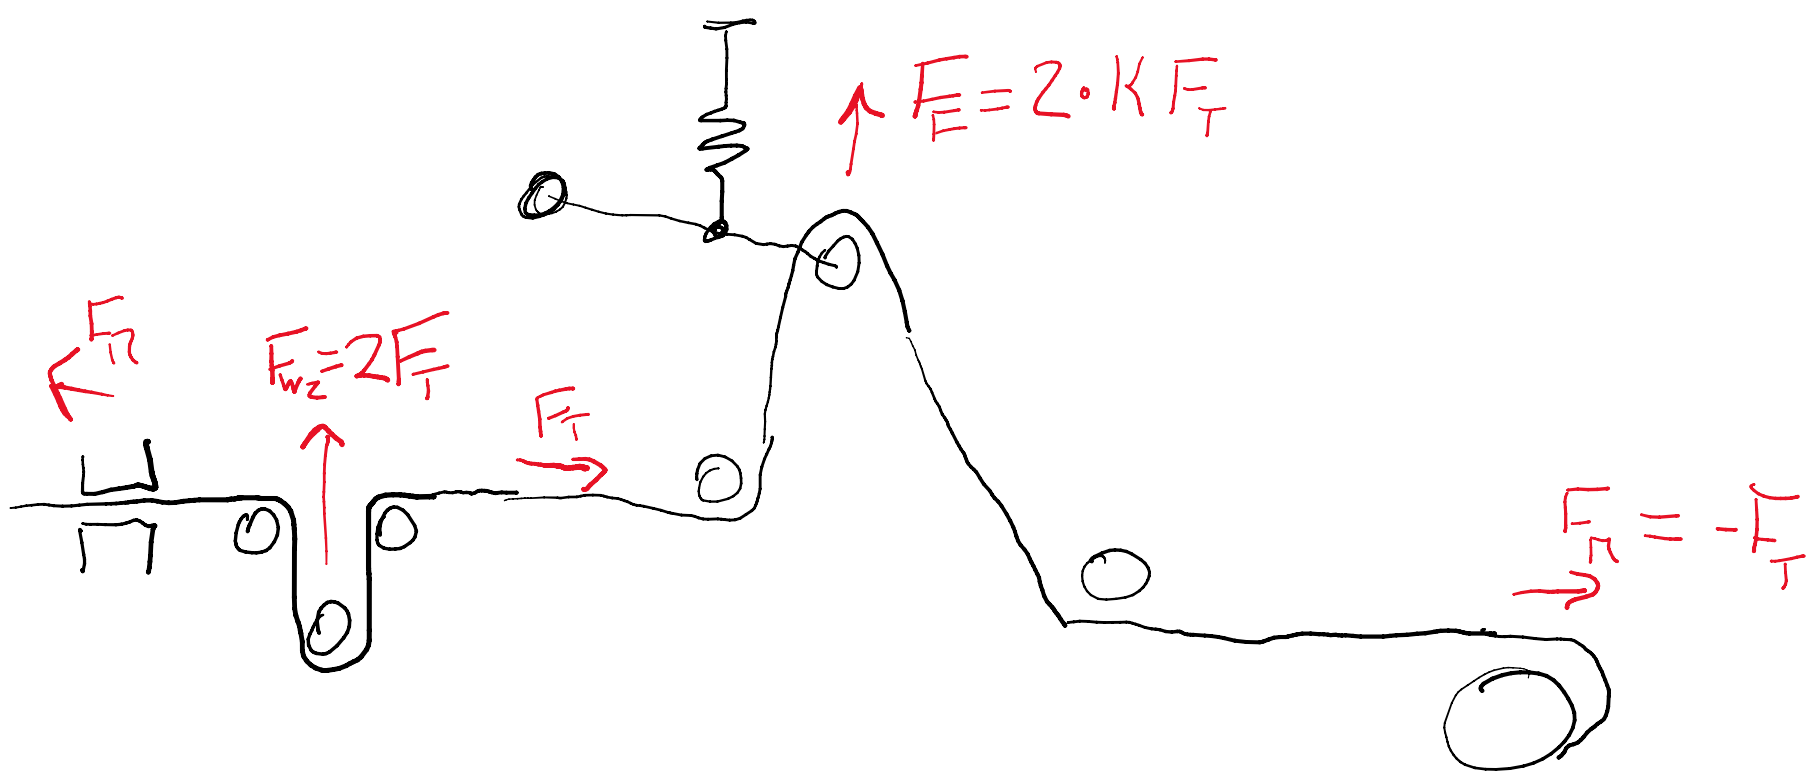 F_E = 2 · K F_T
F_n
F_wz = 2 F_T
F_T
F_n = - F_T